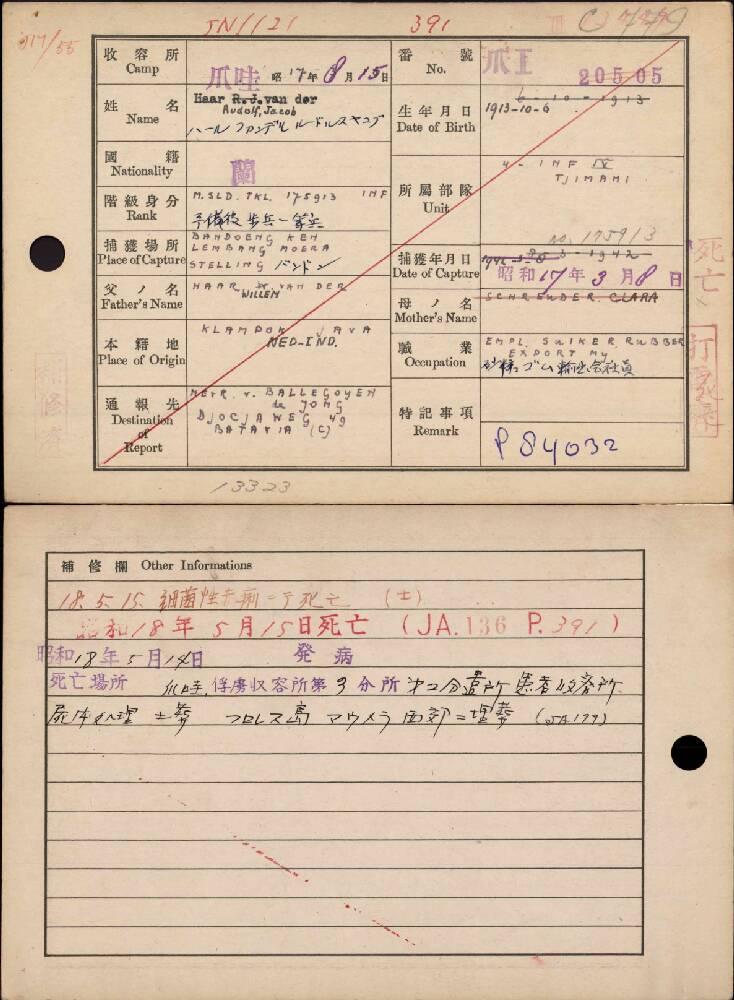 JN1121 391
317/55
收容所 Camp 爪哇 昭17年8月15日
番號 No. 爪王 20505
姓名 Name Haar R.J. van der
Rudolf, Jacob
ハール ファンデル ルードルスヤコブ
生年月日 Date of Birth 6-10-1913
1913-10-6
國籍 Nationality 蘭
所屬部隊 Unit 4-INF IV
TJIMAHI
No. 175913
階級身分 Rank M.SLD. TKL. 175913 INF
予備役 歩兵一等兵
捕獲場所 Place of Capture BANDOENG KEN
LEMBANG MOERA
STELLING バンドン
捕獲年月日 Date of Capture
昭和17年3月8日
父ノ名 Father's Name HAAR VAN DER
WILLEM
母ノ名 Mother's Name SCHREUDER. CLARA
本籍地 Place of Origin KLAMPOK JAVA
NED-IND.
職業 Occupation EMPL. SUIKER RUBBER
EXPORT My
砂糖ゴム輸出会社員
通報先 Destination of Report MEVR. v. BALLEGOYEN
de JONG
DJOCJAWEG 49
BATAVIA (C)
特記事項 Remark P84032
死亡
13323
補修欄 Other Informations
18.5.15. 細菌性赤痢ニテ死亡 (士)
昭和18年5月15日死亡 (JA.136 P.391)
昭和18年5月14日 発病
死亡場所 爪哇俘虜収容所第3分所 第二分遣所 患者収容所
屍体処理 土葬 フロレス島 マウメラ西部ニ埋葬 (JA177)